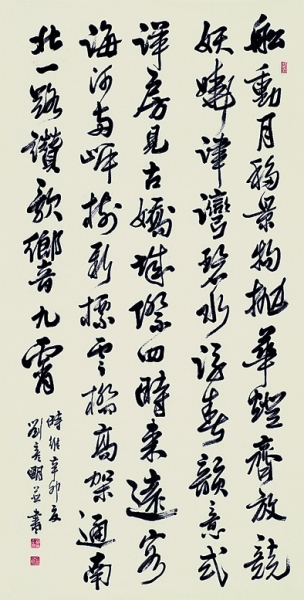 舩動月移景物拋華燈齊放競
妖嬈津灣碧水浮春韻意式
洋房見古嬌城際四時來遠客
海河兩岸樹新標雲橋高架通南
北一路讚歌響九霄
時維辛卯夏
劉彥明並書